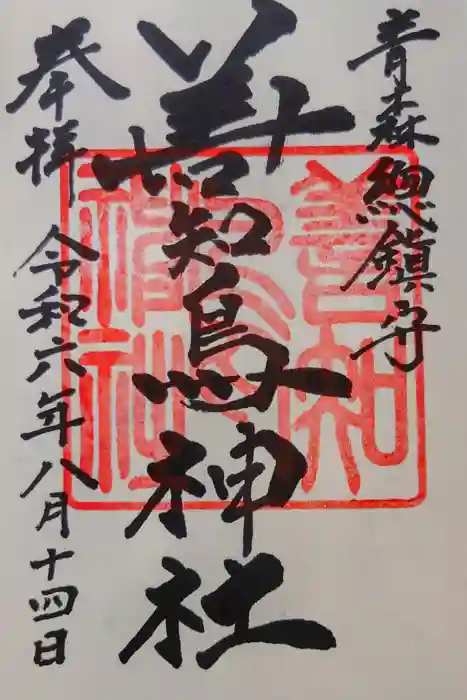 青森總鎮守
善知鳥神社
奉拝
令和六年八月十四日
善知鳥神社